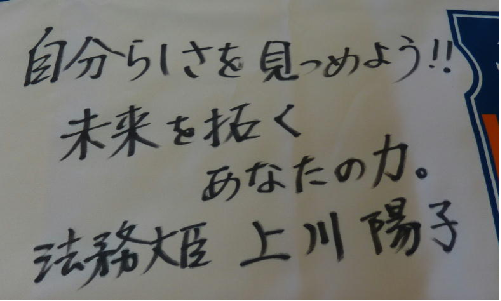 自分らしさを見つめよう!!
未来を拓く
あなたの力。
法務大臣 上川陽子